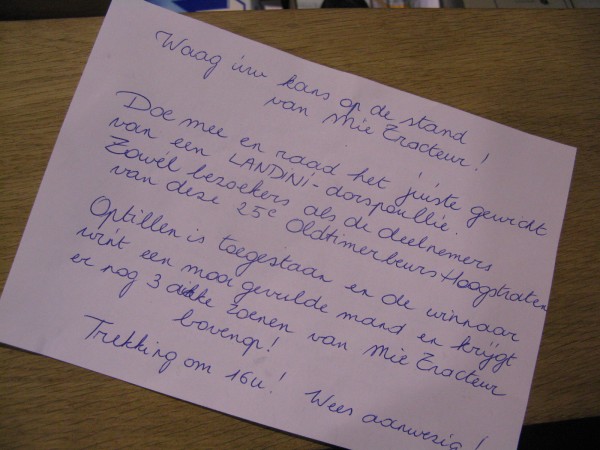 Waag úw kans op de stand
van Mie Tracteur!
Doe mee en raad het juiste gewicht
van een LANDINI-dorspoullie.
Zowél bezoekers als de deelnemers
van deze 25e Oldtimerbeurs Hoogstraten
Optillen is toegestaan en de winnaar
wint een mooi gevulde mand en krijgt
er nog 3 dikke zoenen van Mie Tracteur
bovenop!
Trekking om 16u! Wees aanwezig!